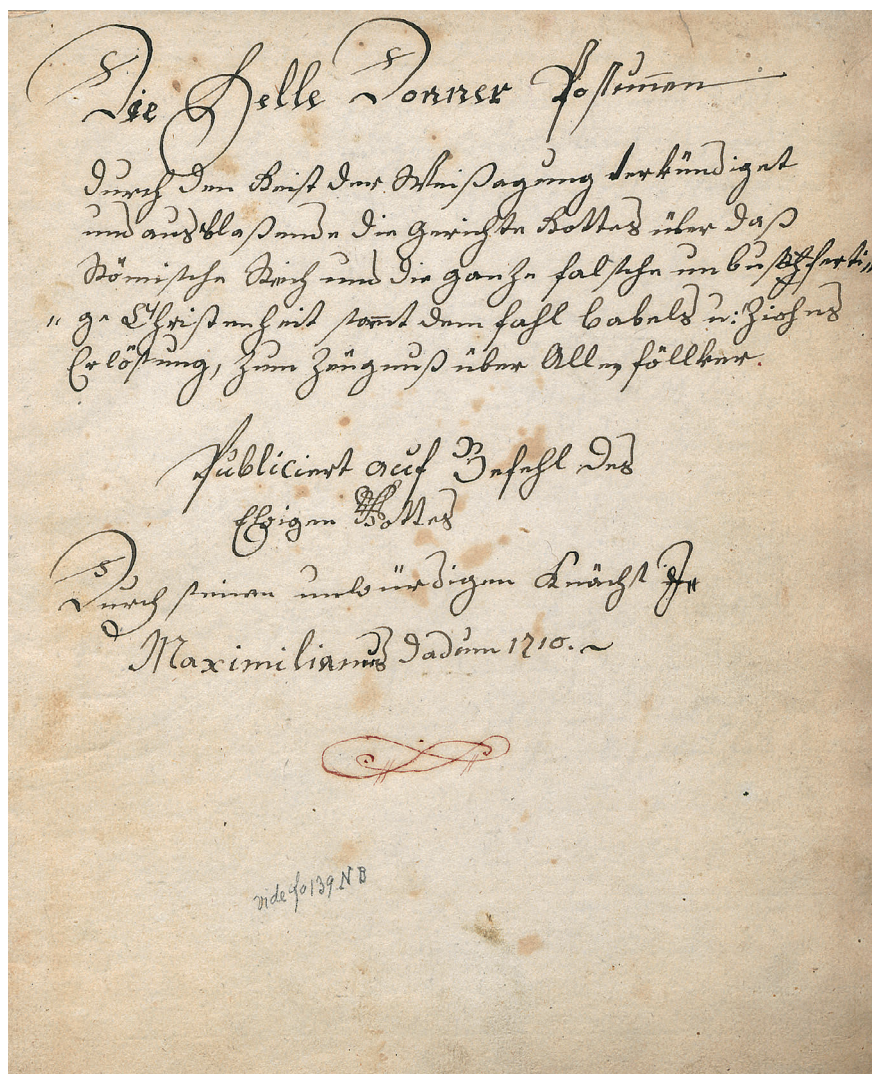 Die Helle Donner Posaunen
durch den Geist der Weißagung verkündiget
und ausblaßende die gerichte Gottes über daß
Römische Reich und die gantze falsche unbußferti„
„ge Christenheit samt dem fahl babels u: Ziohns
Erlösung, zum zeügnuß über Alle föllker.
Publiciert auf Befehl des
Ewigen Gottes
Durch seinen unwürdigen Knächt
Maximilianus dadum 1710.
vide fo 139 NB